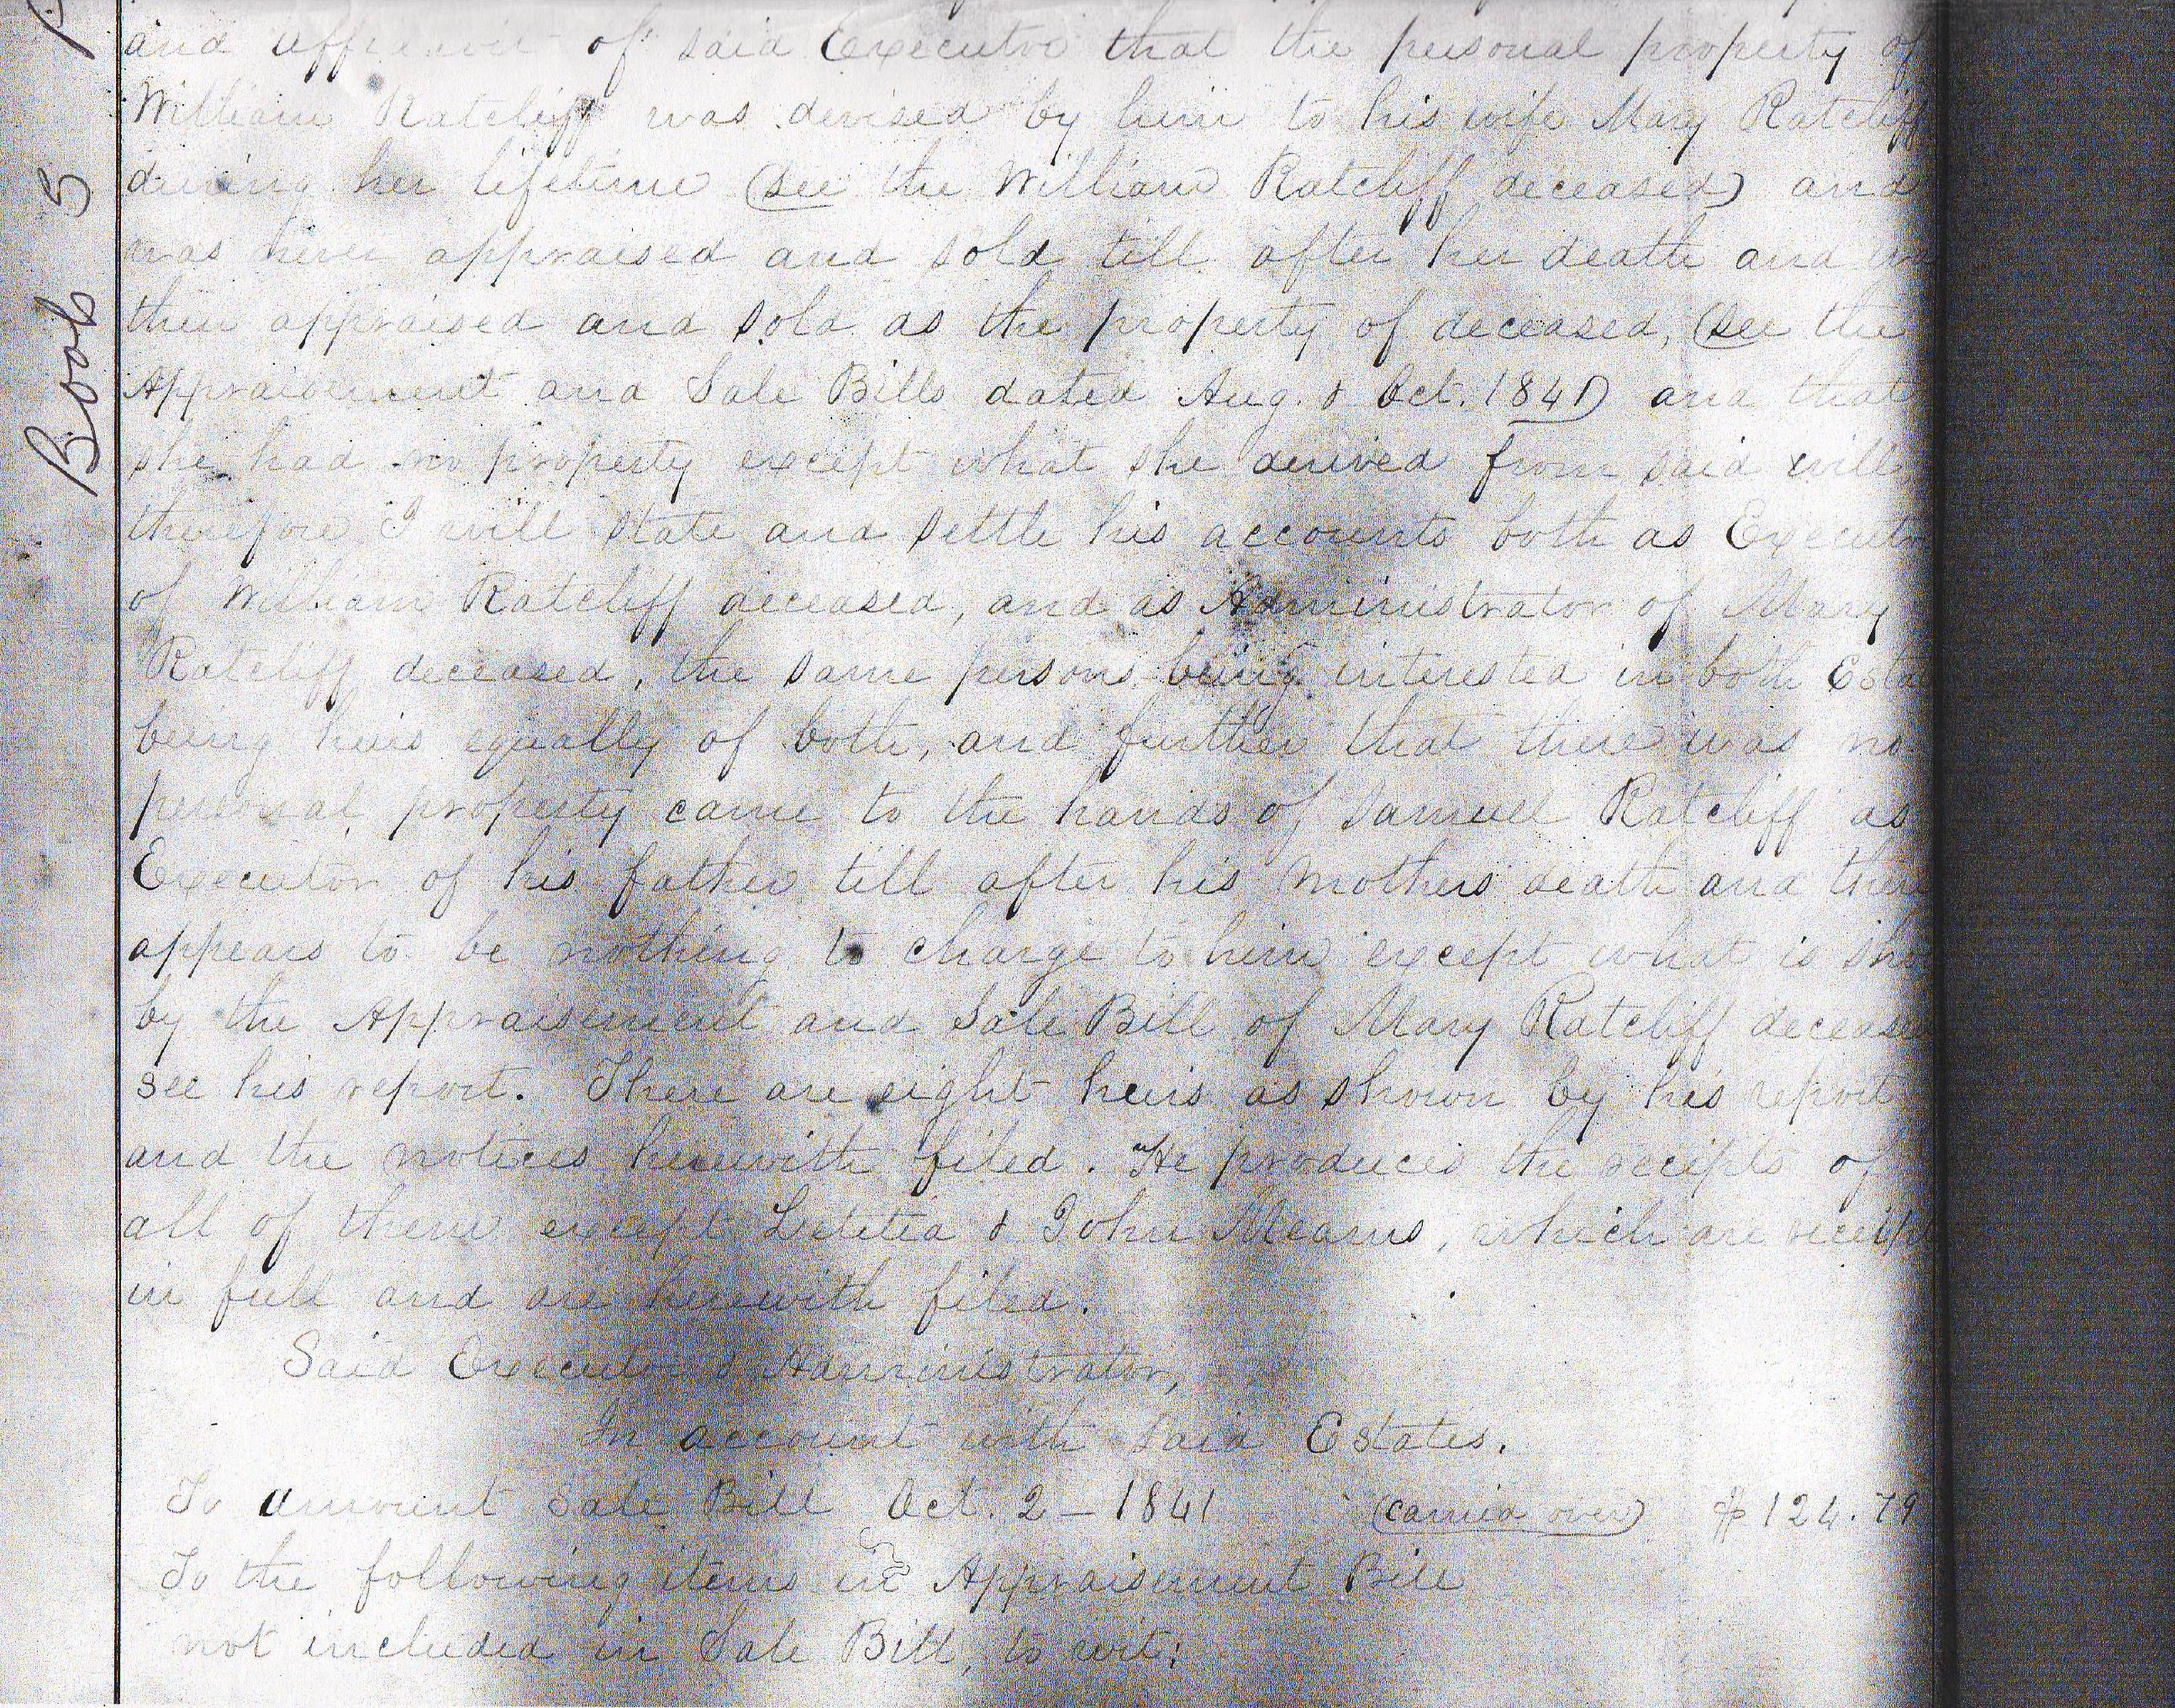 Book 5
and of said Executor that the personal property of
William Ratcliff was devised by him to his wife Mary Ratcliff
during her lifetime (see the William Ratcliff deceased) and
was never appraised and sold till after her death and
then appraised and sold as the property of deceased, (see the
Appraisement and Sale Bills dated Aug. & Oct. 1841) and that
she had no property except what she derived from said will
therefore I will state and settle his accounts both as Executor
of William Ratcliff deceased, and as Administrator of Mary
Ratcliff deceased, the same persons being interested in both Esta
being heirs equally of both, and further that there was no
personal property came to the hands of Samuel Ratcliff as
Executor of his father till after his mothers death and there
appears to be nothing to charge to him except what is sho
by the Appraisement and Sale Bill of Mary Ratcliff deceased
see his report. There are eight heirs as shown by his report
and the notices herewith filed. He produces the receipts of
all of them except Letitia & John Mearns, which are receipt
in full and are herewith filed.
Said Executor & Administrator,
In account with said Estates.
To amount Sale Bill Oct. 2 - 1841 (carried over) $124.79
To the following items in Appraisement Bill
not included in Sale Bill, to wit: